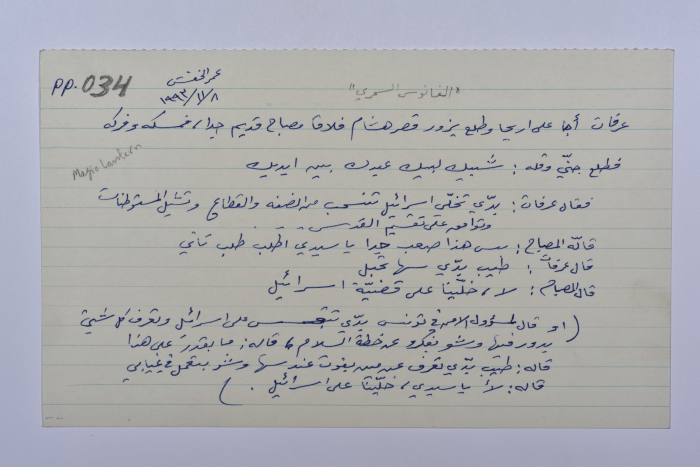 PP. 034
عمر الخفش
١٩٩٣/١١/٨
"الفانوس السحري"
Magic Lantern
عرفات أجا على اريحا وطلع يزور قصر هشام فلاقا مصباح قديم جدا، فمسكه وفركه
فطلع جنّي وقله : شبيك لبيك عبدك بين ايديك
فقال عرفات : بدّي تخلّي اسرائيل تنسحب من الضفه والقطاع وتشيل المستوطنات
وتوافق على تقسيم القدس
قالّه المصباح : بس هذا صعب جدا يا سيدي اطلب طلب تاني
قال عرفات : طيب بدّي سها تحبل
قال المصباح : لا، خلّينا على قضيّة اسرائيل
(او قال لمسؤول الامن في تونس بدّي تتجسس على اسرائيل وتعرف كل شيئ
بدور فيها وشو بفكرو عن خطة السلام، قاله : ما بقدر على هذا
قاله : طيّب بدّي تعرف عن مين بفوت عند سها وشو بتعمل في غيابي
قاله : لأ يا سيدي، خلّينا على اسرائيل . )